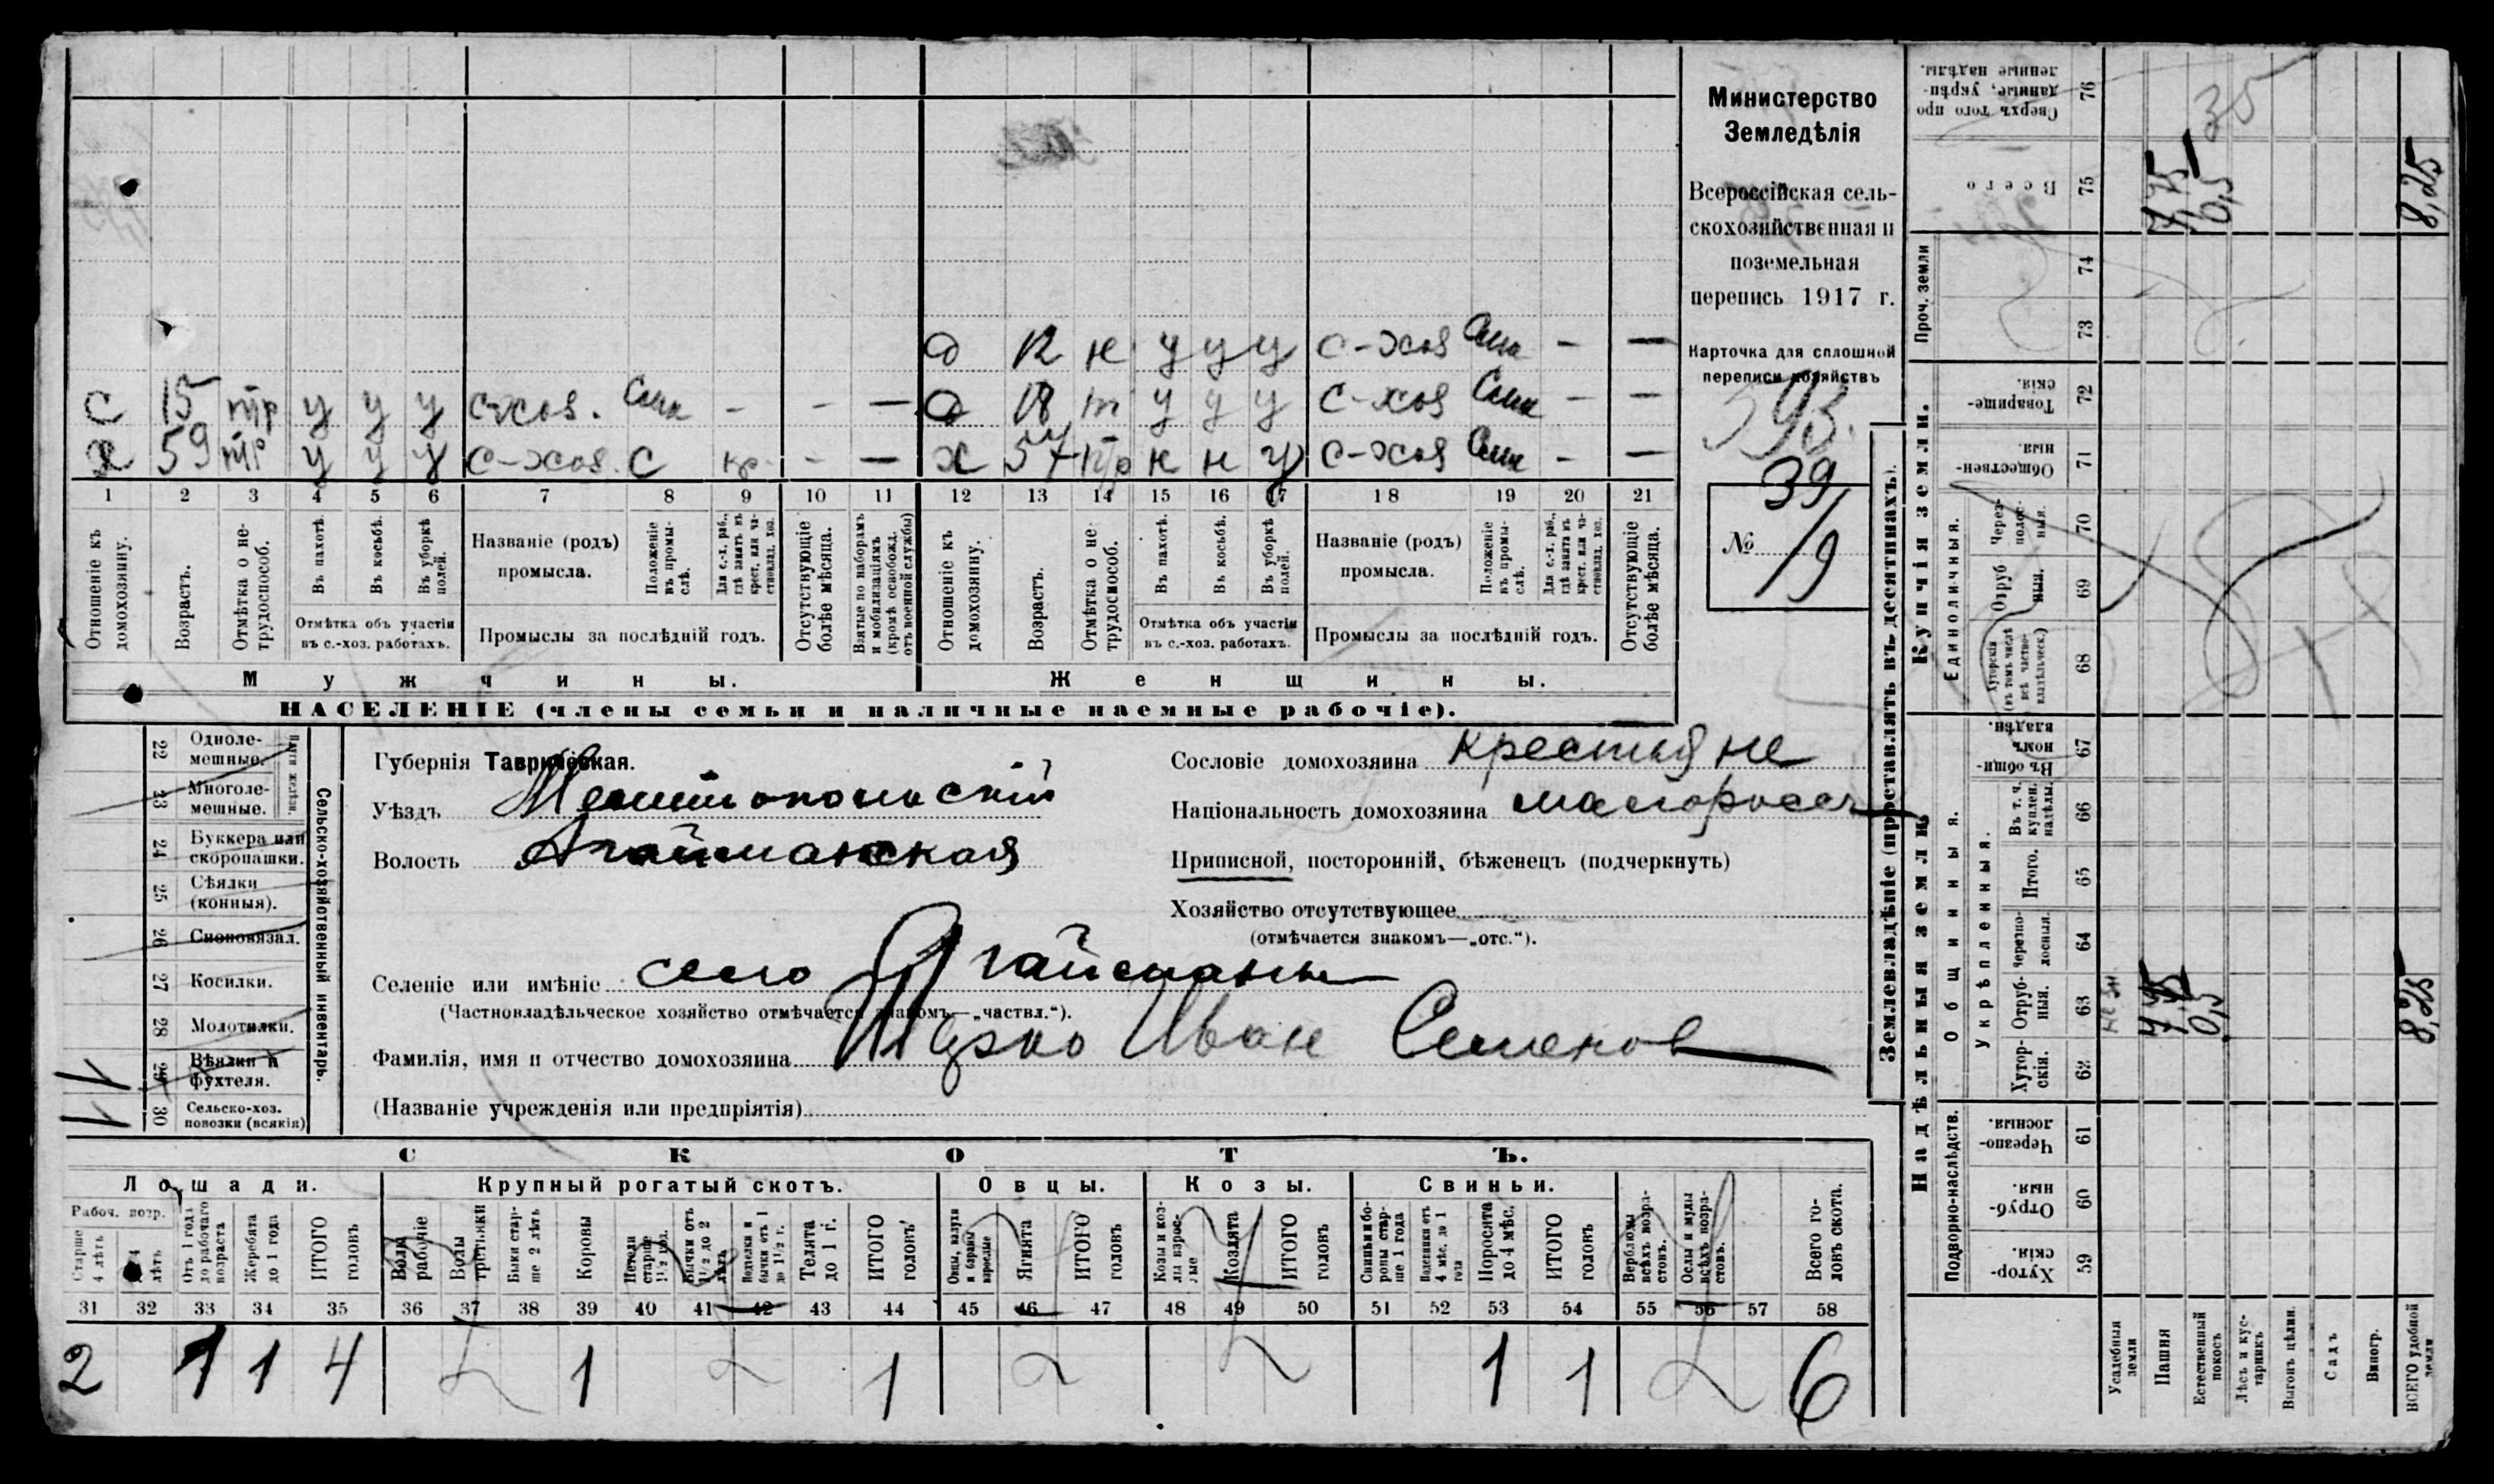 Министерство
Земледѣлія
Всероссійская сель-
скохозяйственная и
поземельная
перепись 1917 г.
Карточка для сплошной
переписи хозяйствъ
393.
№ 39/19
д 12 н у у у с-хоз Сем - -
С 15 тр у у у с-хоз. Сем - - - д 18 т у у у с-хоз Сем - -
х 59 тр у у у с-хоз. С кр - - х 57 тр н н у с-хоз Сем - -
1 2 3 4 5 6 7 8 9 10 11 12 13 14 15 16 17 18 19 20 21
Отношеніе къ домохозяину.
Возрастъ.
Отмѣтка о не-трудоспособ.
Въ пахотѣ.
Въ косьбѣ.
Въ уборкѣ полей.
Отмѣтка объ участіи
въ с.-хоз. работахъ.
Названіе (родъ)
промысла.
Положеніе въ промы-слѣ.
Для с.-х. раб., гдѣ занятъ въ крест. или ча-стновлад. хоз.
Промыслы за послѣдній годъ.
Отсутствующіе болѣе мѣсяца.
Взятые по наборамъ и мобилизаціямъ (кромѣ освобожд. отъ военной службы)
Отношеніе къ домохозяину.
Возрастъ.
Отмѣтка о не-трудоспособ.
Въ пахотѣ.
Въ косьбѣ.
Въ уборкѣ полей.
Отмѣтка объ участіи
въ с.-хоз. работахъ.
Названіе (родъ)
промысла.
Положеніе въ промы-слѣ.
Для с.-х. раб., гдѣ занята въ крест. или ча-стновлад. хоз.
Промыслы за послѣдній годъ.
Отсутствующіе болѣе мѣсяца.
Мужчины. Женщины.
НАСЕЛЕНІЕ (члены семьи и наличные наемные рабочіе).
Сельско-хозяйственный инвентарь.
22 Одноле-мешные.
23 Многоле-мешные.
24 Буккера или скоропашки.
25 Сѣялки (конныя).
26 Сноповязал.
27 Косилки.
28 Молотилки.
29 Вѣялки и фухтеля. 1
30 Сельско-хоз. повозки (всякія) 1
Губернія Таврическая.
Уѣздъ Мелитопольскій
Волость Агайманская
Сословіе домохозяина крестьяне
Національность домохозяина малоросс
Приписной, посторонній, бѣженецъ (подчеркнуть)
Хозяйство отсутствующее
(отмѣчается знакомъ—„отс.“).
Селеніе или имѣніе село Агайманы
(Частновладѣльческое хозяйство отмѣчается знакомъ—„частвл.“).
Фамилія, имя и отчество домохозяина Иван Семенов
(Названіе учрежденія или предпріятія)
СКОТЪ.
Лошади. Крупный рогатый скотъ. Овцы. Козы. Свиньи.
Рабоч. возр.
Старше 4 лѣтъ
До 4 лѣтъ
Отъ 1 года до рабочаго возраста
Жеребята до 1 года
ИТОГО головъ
Волы рабочіе
Волы третьяки
Быки стар-ше 2 лѣтъ
Коровы
Нетели старше 1½ год.
Бычки отъ 1½ до 2 лѣтъ
Телки и бычки отъ 1 до 1½ г.
Телята до 1 г.
ИТОГО головъ
Овцы, валухи и бараны взрослые
Ягнята
ИТОГО головъ
Козы и коз-лы взрос-лые
Козлята
ИТОГО головъ
Свиньи и бо-ровы стар-ше 1 года
Подсвинки отъ 4 мѣс. до 1 года
Поросята до 4 мѣс.
ИТОГО головъ
Верблюды всѣхъ возра-стовъ.
Ослы и мулы всѣхъ возра-стовъ.
Всего го-ловъ скота.
31 32 33 34 35 36 37 38 39 40 41 42 43 44 45 46 47 48 49 50 51 52 53 54 55 56 57 58
2 1 1 4 1 1 1 1 6
Землевладѣніе (проставлять въ десятинахъ).
Купчія земли.
Проч. земли
Сверхъ того про данные, укрѣп-ленные надѣлы. 76
Всего 75
74
73
Товарище-скія. 72
Обществен-ныя 71
Единоличныя.
Через-полос-ныя. 70
Отруб-ныя. 69
Хуторскія (въ томъ числѣ всѣ частно-владѣльческ.) 68
Надѣльныя земли.
Общинныя.
Въ общи-номъ владѣн. 67
Въ т. ч. куплен. надѣлы. 66
Укрѣпленныя.
Итого. 65
Черезпо-лосныя. 64
Отруб-ныя. 63
Хутор-скія. 62
Подворно-наслѣдств.
Черезпо-лосныя 61
Отруб-ныя. 60
Хутор-скія. 59
Усадебныя земли
Пашня 7,75 7,75
Естественный покосъ 0,5 0,5
Лѣсъ и кус-тарникъ
Выгонъ цѣлин.
Садъ
Виногр.
ВСЕГО удобной земли 8,25 8,25
35